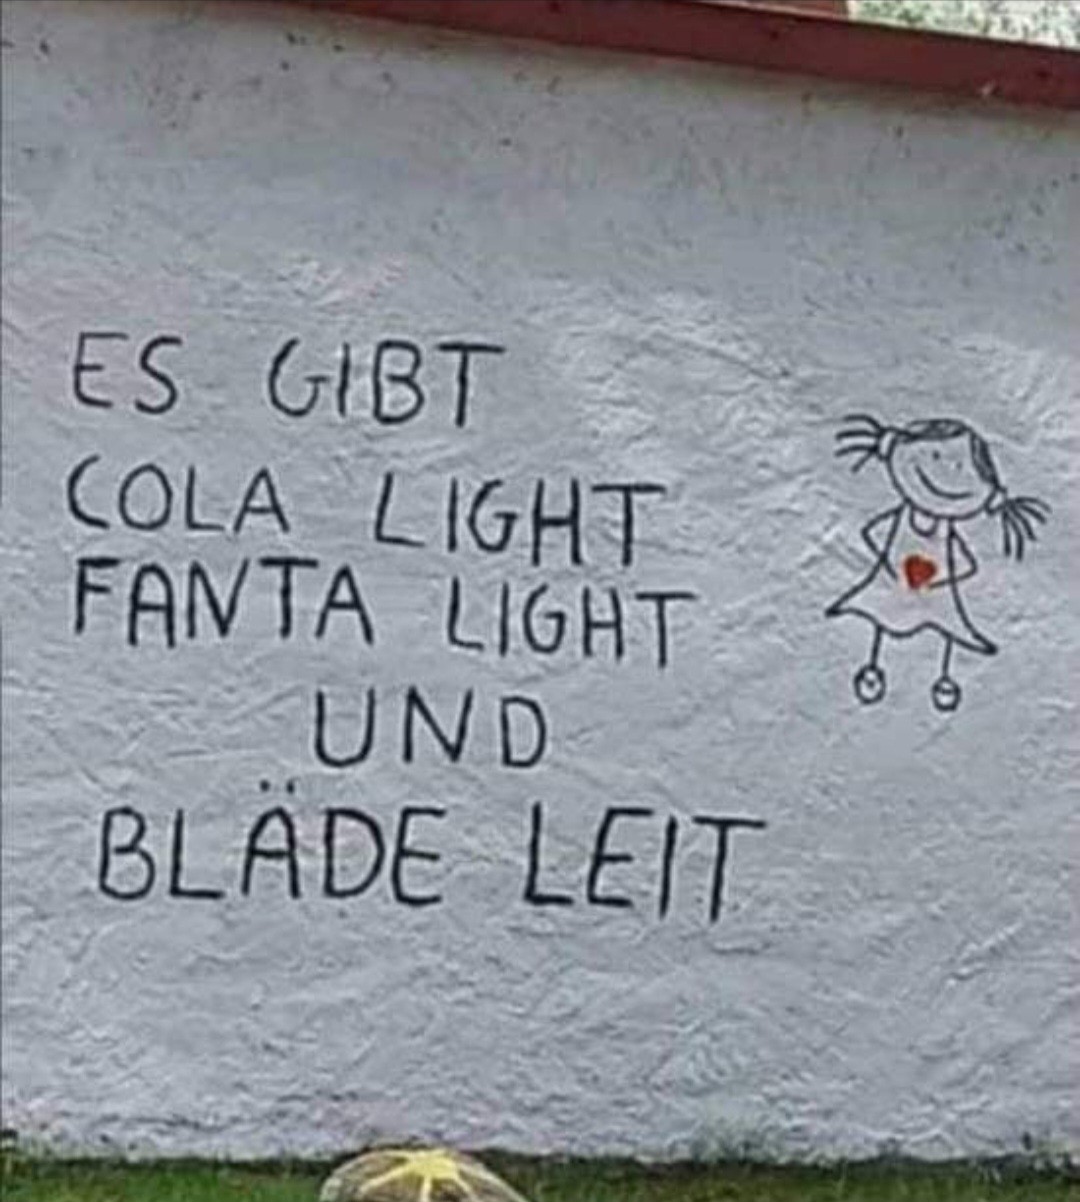 ES GIBT
COLA LIGHT
FANTA LIGHT
UND
BLÄDE LEIT